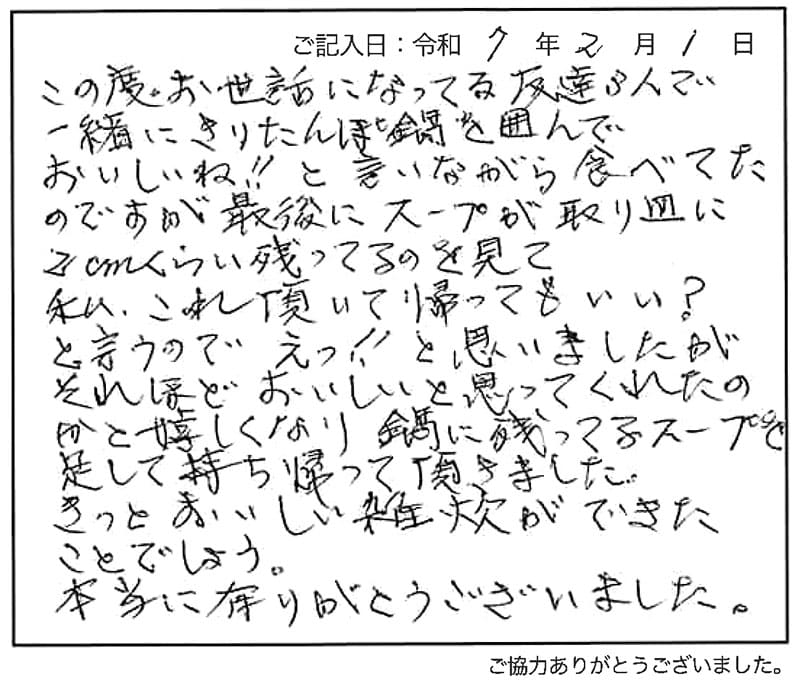 ご記入日：令和 7 年 2 月 1 日
この度、お世話になってる友達3人で
一緒にきりたんぽ鍋を囲んで
おいしいね!!と言いながら食べてた
のですが最後にスープが取り皿に
2cmくらい残ってるのを見て
私、これ頂いて帰ってもいい？
と言うので えっ!!と思いましたが
それほど おいしいと思ってくれたの
かと嬉しくなり 鍋に残ってるスープを
足して持ち帰って頂きました。
きっと おいしい雑炊ができた
ことでしょう。
本当に有りがとうございました。
ご協力ありがとうございました。